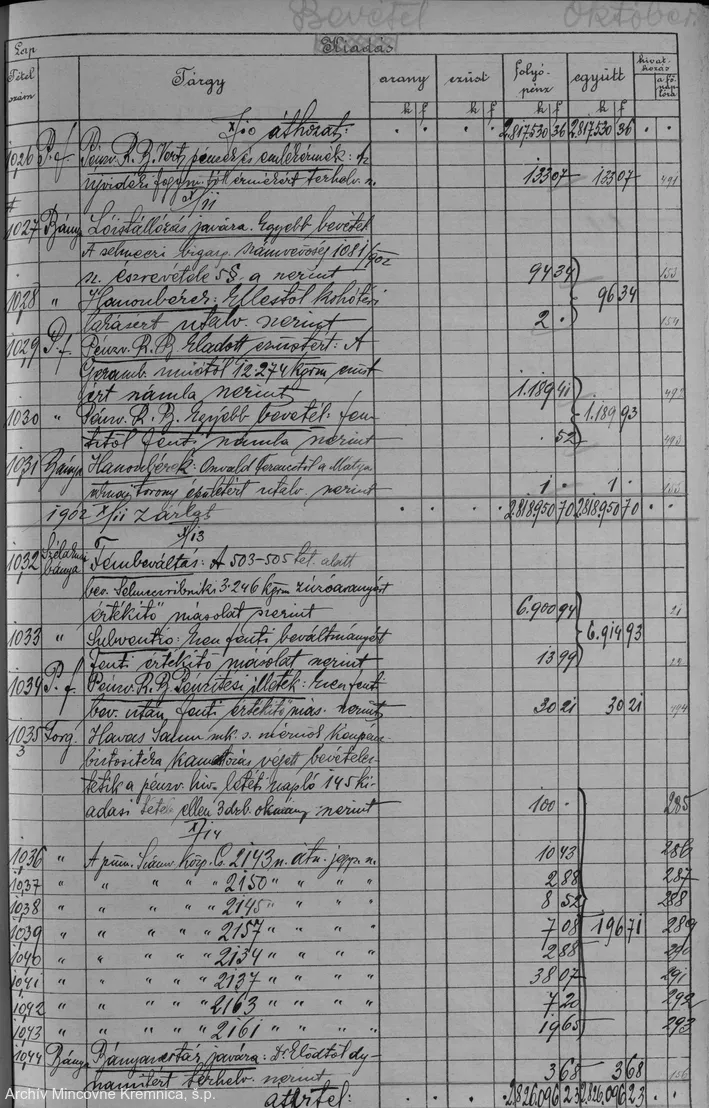 Bevétel Október.
Lap Kiadás
Tétel szám Tárgy arany ezüst folyó-pénz együtt hivat-kozás a fő-naplóra
k f k f k f k f
X/10 áthozat: 2.817.530 36 2.817.530 36
1026 P.f. Pénzv. R. B. Vert pénzek és emlékérmék: Az
ujvidéki érmékért terhelv. sz. 133 07 133 07 491
X/11
1027 Bánya Lóistállózás javára. Egyébb bevétel
A selmeczi bigazg. számvevőség 1081/902
sz. észrevétele 5§. a szerint 94 34 153
1028 " Haszonbérek: kohótéri
utalv. szerint 2 . 96 34 154
1029 P.f. Pénzv. R. B. Eladott ezüstért: A
Geramb uniótól 12.274 kgrm ezüst
ért számla szerint 1.189 41 492
1030 " Pénzv. R. B. Egyébb bevétel: fen-
titől fenti számla szerint . 52 1.189 93 493
1031 Bánya Haszonbérek: Osvald Ferencztől a Mátyás
torony épületért utalv. szerint 1 . 1 . 155
1902 X/11 zárlat 2.818.950 70 2.818.950 70
X/13
1032 bánya Fémbeváltás: A 503-505 tét. alatt
bev. 3.246 kgrm zúzóaranyért
értékitő másolat szerint 6.900 94 21
1033 " Ezen fenti beváltmányért
fenti értékitő másolat szerint 13 99 6.914 93
1034 P.f. Pénzv. R. B. Pénzverési illeték: Ezen fenti
bev. után fenti értékitő más. szerint 30 21 30 21 494
1035 Forg. Havas Samu mk. s. mérnök
biztositéka kamatozás végett bevétele-
tetik a pénzv. hiv. letéti napló 145 ki-
adási tétele ellen 3 drb. okmány szerint 100 . 285
X/14
1036 " A pénz. Számv. közp. Cs. 2143 sz. átu. jegyz. sz. 10 43 286
1037 " " " " " 2150 " " " 2 88 287
1038 " " " " " 2145 " " " 8 52 288
1039 " " " " " 2157 " " " 7 08 196 71 289
1040 " " " " " 2134 " " " 2 88 290
1041 " " " " " 2137 " " " 38 07 291
1042 " " " " " 2163 " " " 7 20 292
1043 " " " " " 2161 " " " 19 65 293
1044 Bánya Bányaszertár javára: Dr Elődtől dy-
namitért terhelv. szerint 3 68 3 68 156
átvitel: 2.826.096 23 2.826.096 23
Archív Mincovne Kremnica, š.p.